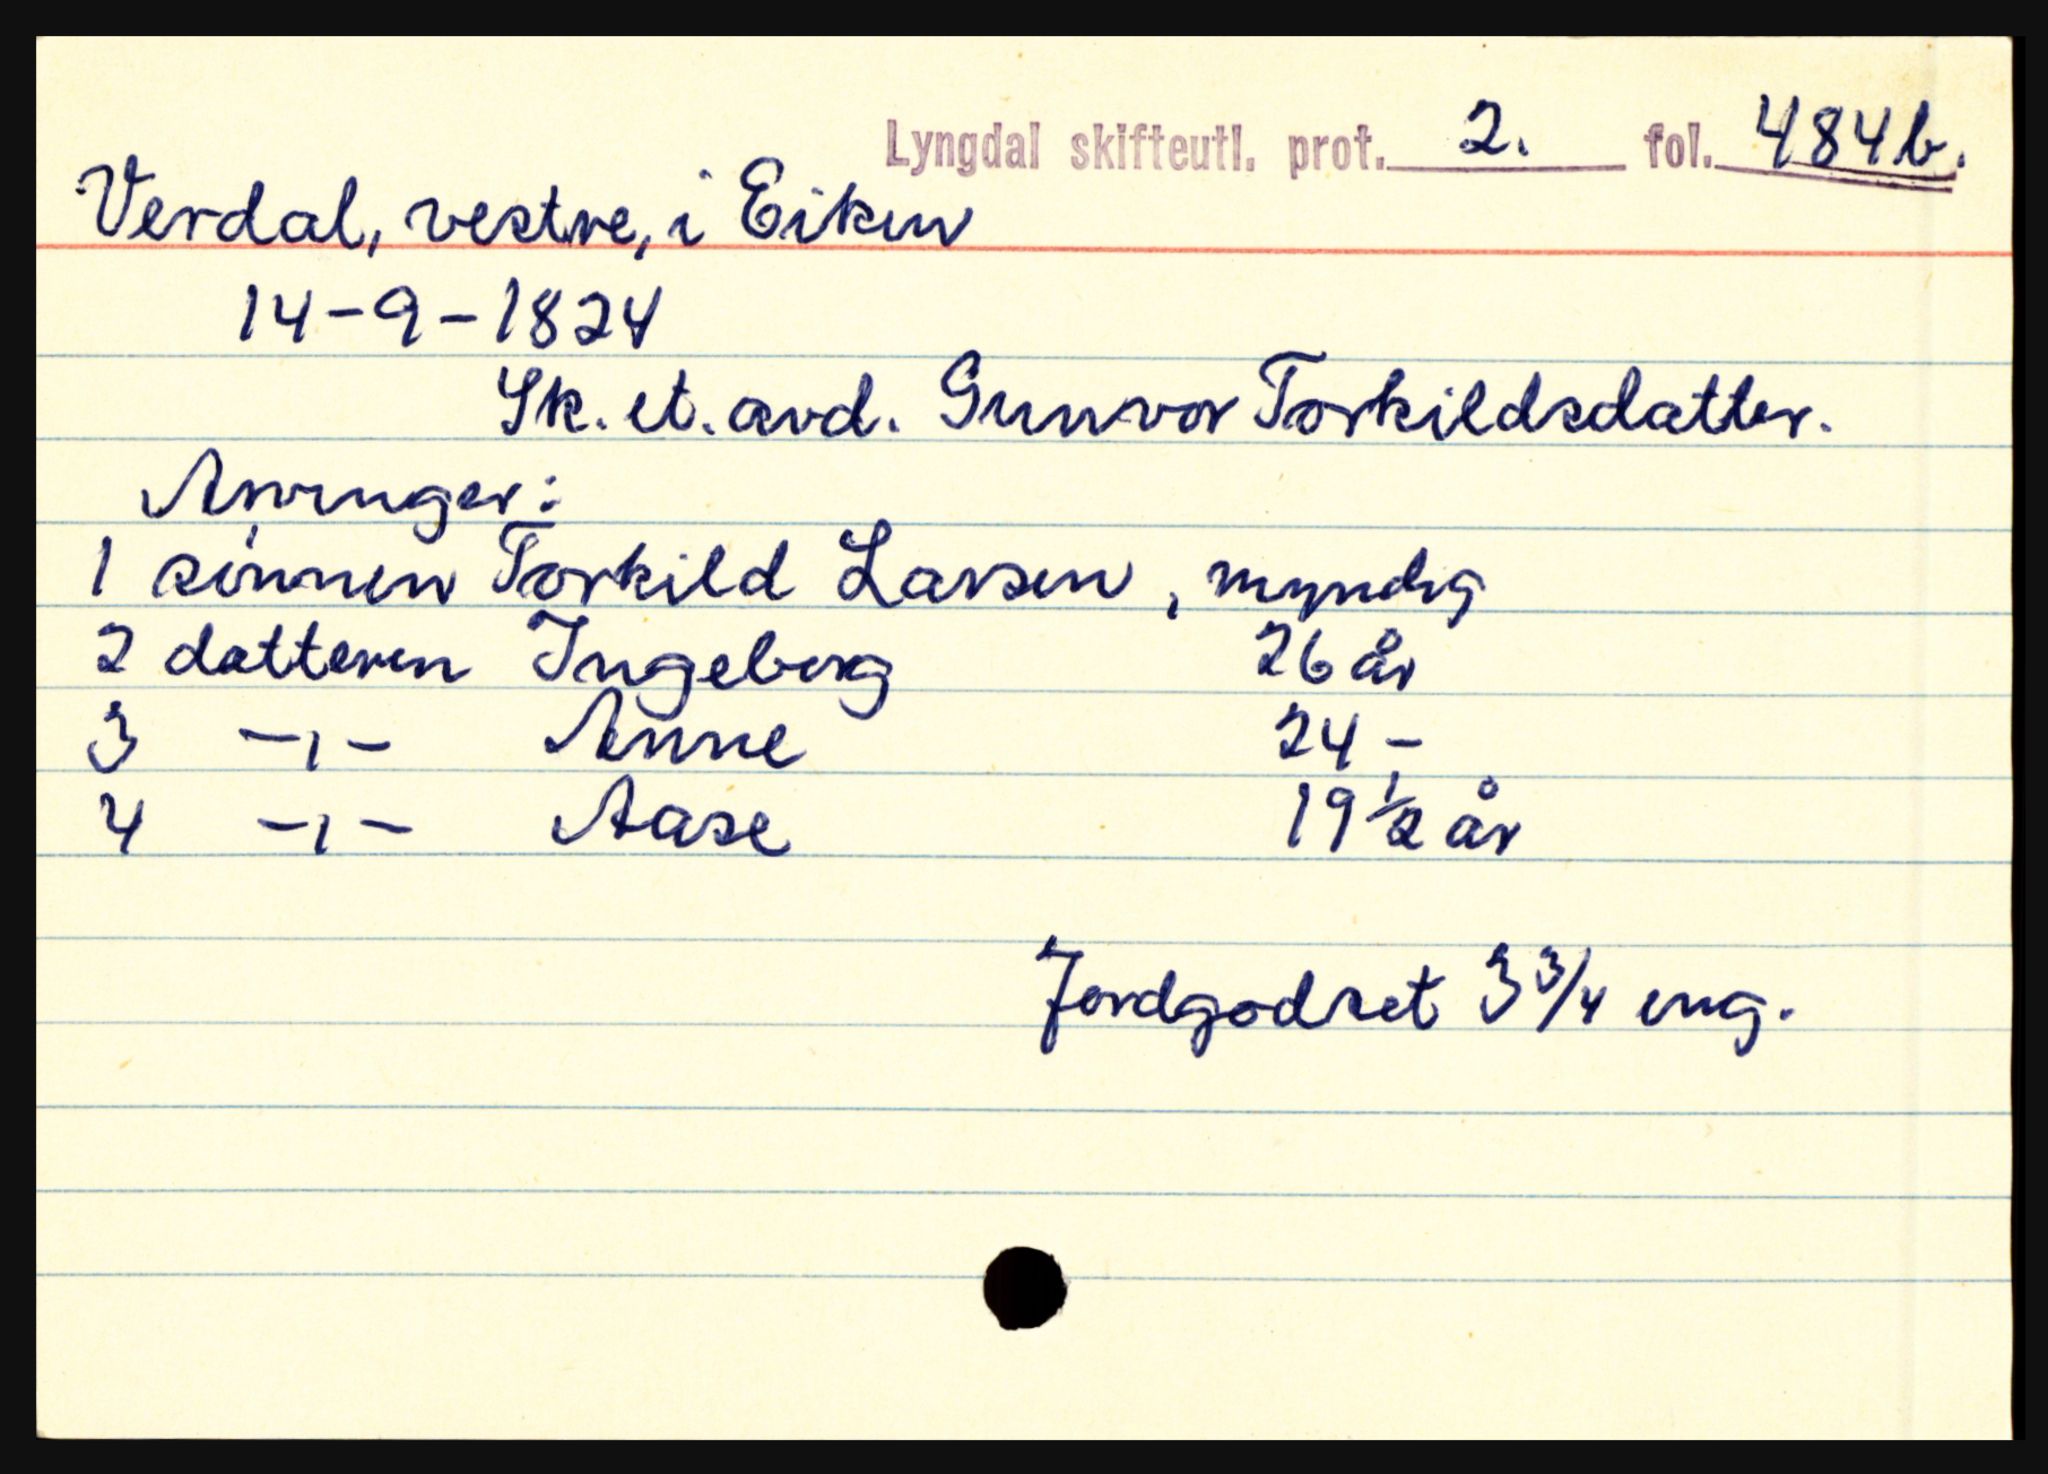 Lyngdal skifteutl. prot. 2. fol. 484b.
Verdal, vestre, i Eiken
14-9-1824
Sk. et. avd. Gunvor Torkildsdatter.
Arvinger:
1 sønnen Torkild Larsen, myndig
2 datteren Ingeborg 26 år
3 -ı- Anne 24 -
4 -ı- Aase 19 ½ år
Jordgodset 3 3/4 eng.